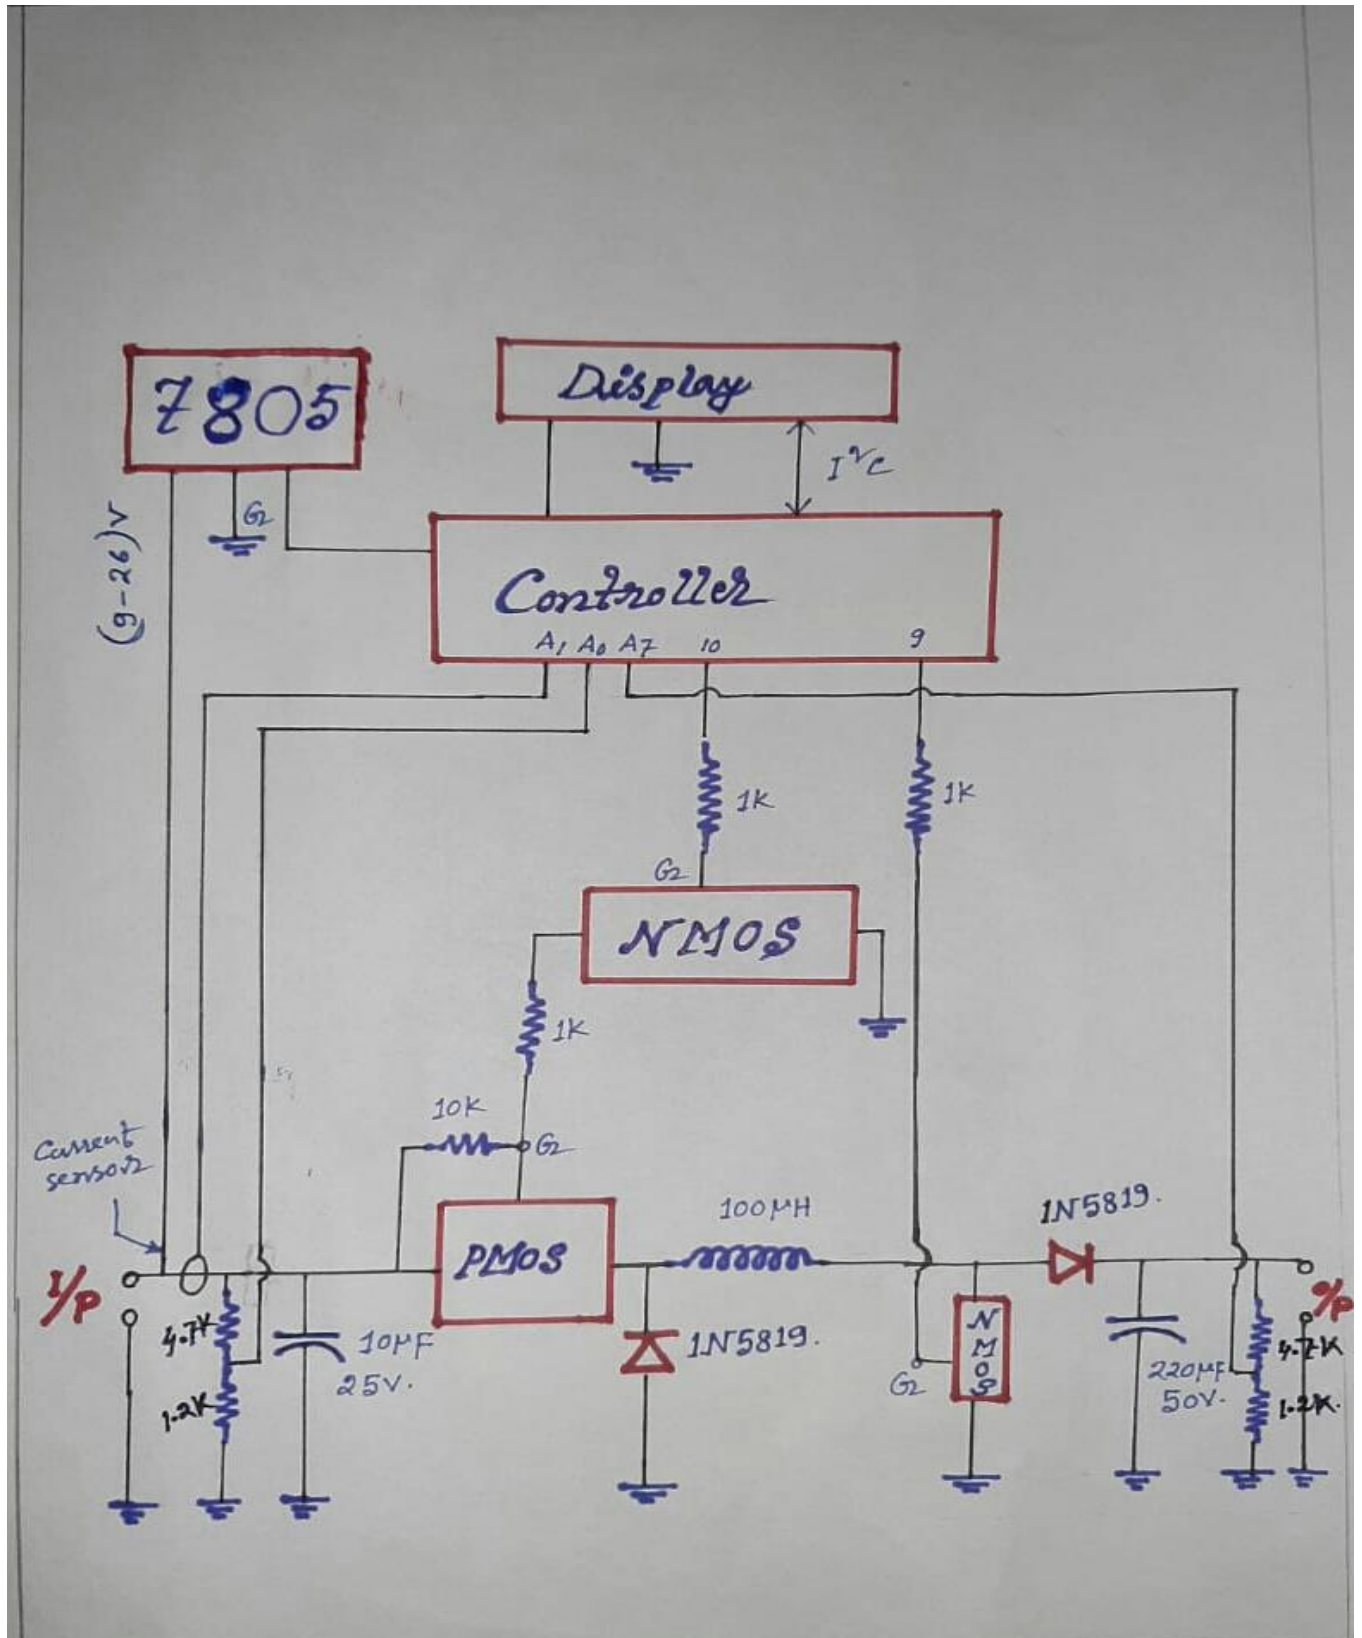 7805
Display
I²C
G
(9-26)V
Controller
A1 A0 A7 10 9
1K
1K
G
NMOS
1K
10K
G
Current
sensor
100µH
1N5819.
PMOS
I/P
O/P
4.7K
10µF
25V.
1N5819.
NMOS
G
220µF
50V.
4.7K
1.2K
1.2K.